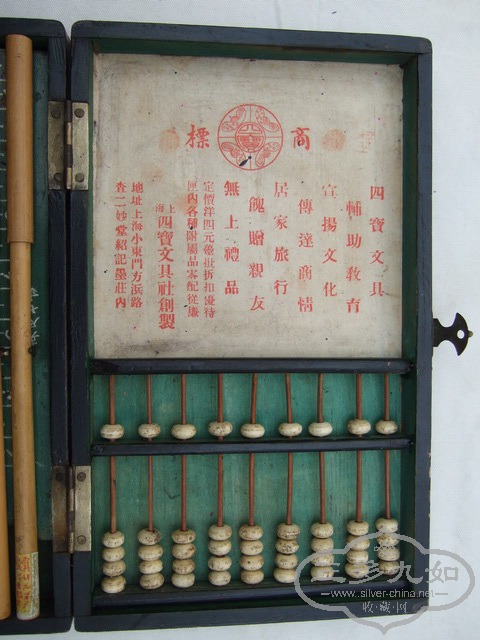 商標
四寶文具
輔助教育
宣揚文化
傳達商情
居家旅行
餽贈親友
無上禮品
定價洋四元躉批折扣優待
匣內各種附屬品零配從廉
上海四寶文具社創製
地址上海小東門方浜路
查二妙堂紹記墨莊內
三多九如
www.silver-china.net
收藏网